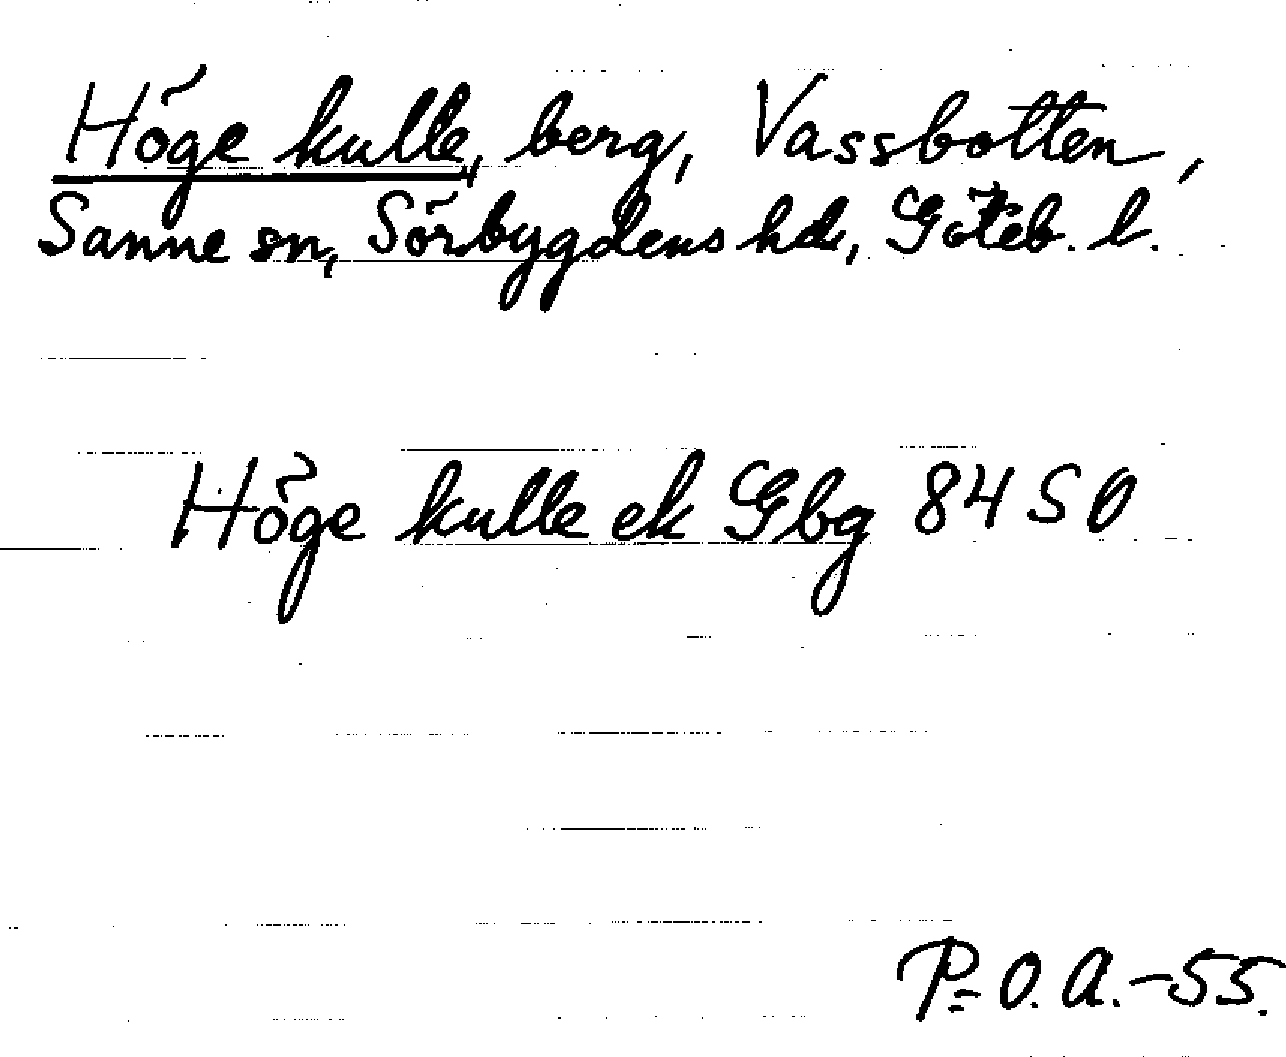 Höge kulle, berg, Vassbotten,
Sanne sn, Sörbygdens hd, Göteb. l.
Höge kulle ek Gbg 84 SO
P=O.A.-55.